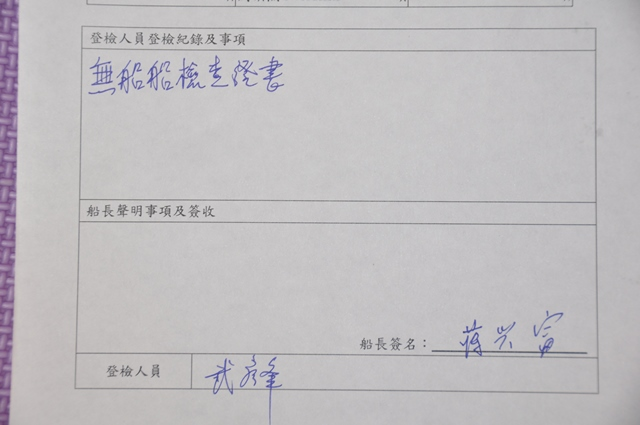 登檢人員登檢紀錄及事項
無船船檢查證書
船長聲明事項及簽收
船長簽名：蔣兴富
登檢人員